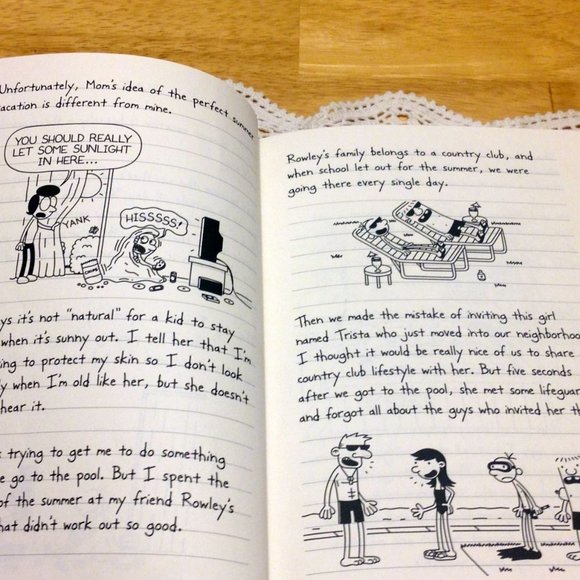 Unfortunately, Mom's idea of the perfect summer
vacation is different from mine.
YOU SHOULD REALLY
LET SOME SUNLIGHT
IN HERE...
YANK
HISSSSS!
it's not "natural" for a kid to stay
when it's sunny out. I tell her that I'm
to protect my skin so I don't look
when I'm old like her, but she doesn't
hear it.
trying to get me to do something
go to the pool. But I spent the
of the summer at my friend Rowley's
that didn't work out so good.
Rowley's family belongs to a country club, and
when school let out for the summer, we were
going there every single day.
Then we made the mistake of inviting this girl
named Trista who just moved into our neighborhood
I thought it would be really nice of us to share
country club lifestyle with her. But five seconds
after we got to the pool, she met some lifeguard
and forgot all about the guys who invited her